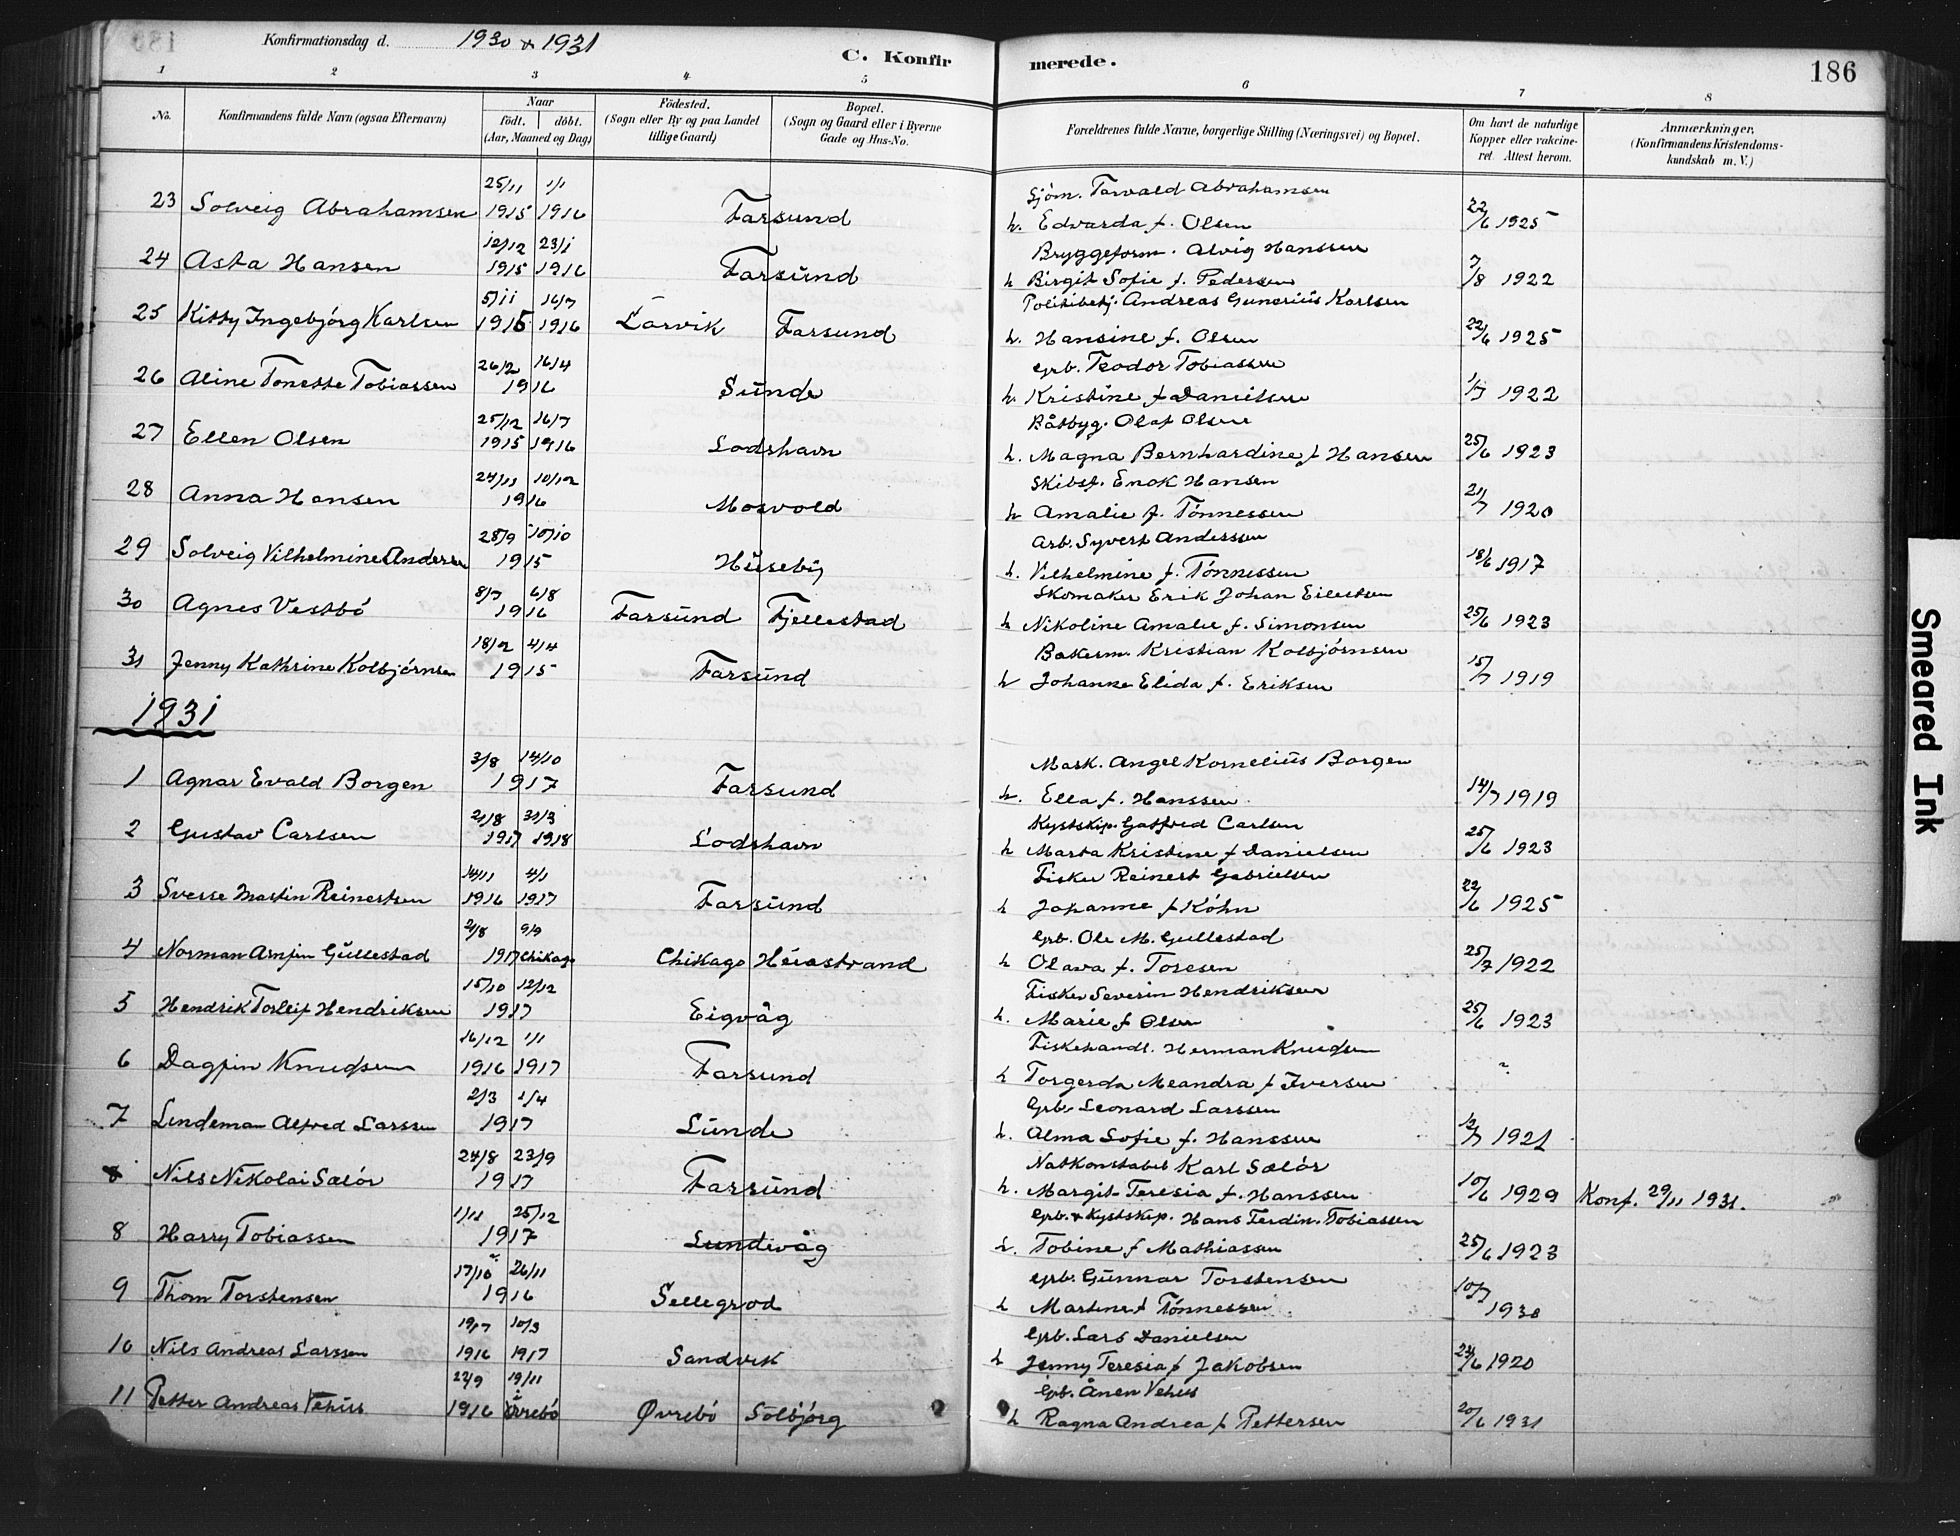 Konfirmationsdag d. 1930 & 1931
C. Konfirmerede. 186
1 2 3 4 5 6 7 8
No. Konfirmandens fulde Navn (ogsaa Efternavn) Naar födt. döbt. (Aar, Maaned og Dag) Födested. (Sogn eller By og paa Landet tillige Gaard) Bopæl. (Sogn og Gaard eller i Byerne Gade og Hus-No. Forældrenes fulde Navne, borgerlige Stilling (Næringsvei) og Bopæl. Om havt de naturlige Kopper eller vakcineret. Attest herom. Anmærkninger. (Konfirmandens Kristendomskundskab m. V.)
25/11 1/1 Sjöm. Torvald Abrahamsen
23 Solveig Abrahamsen 1915 1916 Farsund h. Edvarda f. Olsen 22/6 1925
12/12 23/1 Bryggeform. Alvig Hanssen
24 Asta Hansen 1915 1916 Farsund h Birgit Sofie f. Pedersen 7/8 1922
5/11 16/7 Politibetj. Andreas Gunerius Karlsen
25 Kitty Ingebjörg Karlsen 1915 1916 Larvik Farsund h. Hansine f. Olsen 22/6 1925
26/2 16/4 Grb. Teodor Tobiassen
26 Aline Tonette Tobiassen 1916 Sunde h. Kristine f Danielsen 1/7 1922
25/12 16/7 Båtbyg. Olaf Olsen
27 Ellen Olsen 1915 1916 Lodshavn h. Magna Bernhardine f Hansen 25/6 1923
24/11 10/12 Skibsf. Enok Hansen
28 Anna Hansen 1916 Mosvold h Amalie f. Tönnessen 21/7 1920
28/9 10/10 Arb. Syvert Anderssen
29 Solveig Vilhelmine Andersen 1915 Huseby h. Vilhelmine f. Tönnessen 18/6 1917
8/7 6/8 Skomaker Erik Johan Eilertsen
30 Agnes Vestbö 1916 Farsund Fjellestad h Nikoline Amalie f. Simonsen 25/6 1923
18/2 4/4 Bakerm. Kristian Kolbjörnsen
31 Jenny Kathrine Kolbjörnsen 1915 Farsund h Johanne Elida f. Eriksen 15/7 1919
1931
3/8 14/10 Mask. Angel Kornelius Borgen
1 Agnar Evald Borgen 1917 Farsund h. Ella f. Hanssen 14/7 1919
21/8 31/3 Kystskip. Gotfred Carlsen
2 Gustav Carlsen 1917 1918 Lodshavn h Marta Kristine f Danielsen 25/6 1923
14/11 4/1 Fisker Reinert Gabrielsen
3 Sverre Martin Reinertsen 1916 1917 Farsund h Johanne f Köhn 22/6 1925
2/8 9/9 Grb. Ole M. Gullestad
4 Norman Arnfin Gullestad 1917 Chikago Chikago Heiastrand h Olava f. Toresen 25/7 1922
15/10 12/12 Fisker Severin Hendriksen
5 Hendrik Torleif Hendriksen 1917 Eigvåg h. Marie f Olsen 25/6 1923
16/12 1/1 Fiskehandl. Herman Knudsen
6 Dagfin Knudsen 1916 1917 Farsund h Torgerda Meandra f Iversen "
2/3 1/4 Grb. Leonard Larssen
7 Lindeman Alfred Larssen 1917 Lunde h. Alma Sofie f. Hanssen 12/7 1921
24/8 23/9 Natkonstabel Karl Sælör
8 Nils Nikolai Sælör 1917 Farsund h. Margit Teresia f. Hanssen 10/6 1929 Konf. 29/11 1931.
1/11 25/12 Grb. & Kystskip. Hans Ferdin. Tobiassen
8 Harry Tobiassen 1917 Lundevåg h. Tobine f Mathiassen 25/6 1923
17/10 26/11 Grb. Gunnar Torstensen
9 Thom Torstensen 1916 Sellegrod h Martine f Tönnessen 10/7 1930
19/7 10/3 Grb. Lars Danielsen
10 Nils Andreas Larssen 1916 1917 Sandvik h Jenny Teresia f Jakobsen 23/6 1920
22/9 19/11 Grb. Ånen Vehus
11 Petter Andreas Vehus 1916 i Övrebö Øvrebö Solbjörg h Ragna Andrea f Pettersen 20/6 1931
Smeared Ink